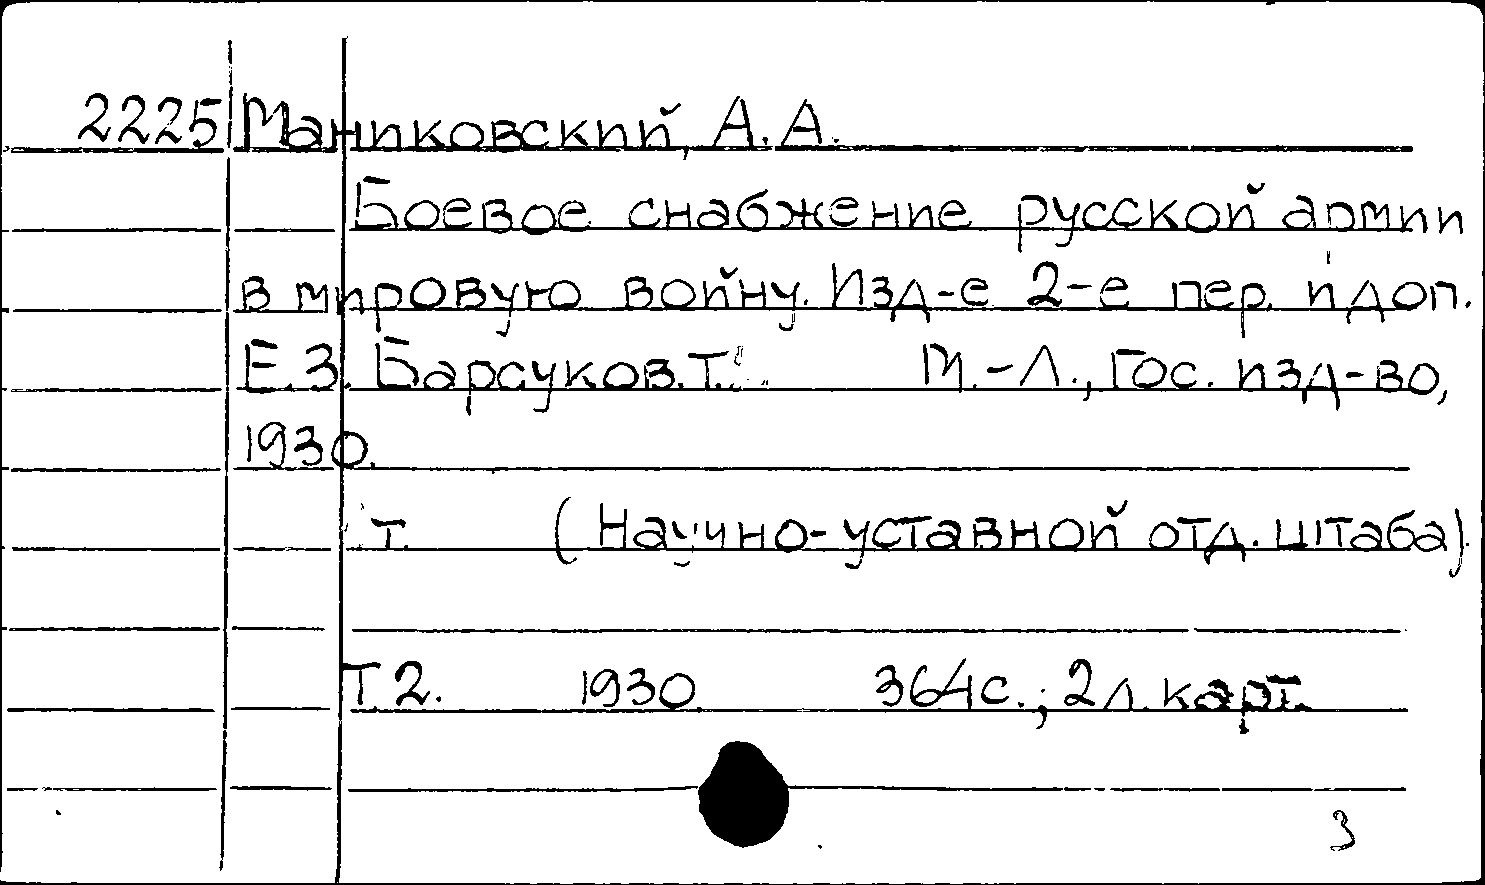 2225 Маниковский, А.А.
Боевое снабжение русской армии
в мировую войну. Изд-е 2-е пер. и доп.
Е.З. Барсуков. Т. М.-Л., Гос. изд-во,
1930.
т. (Научно-уставной отд. штаба).
Т.2. 1930. 364с.; 2л. карт.
3